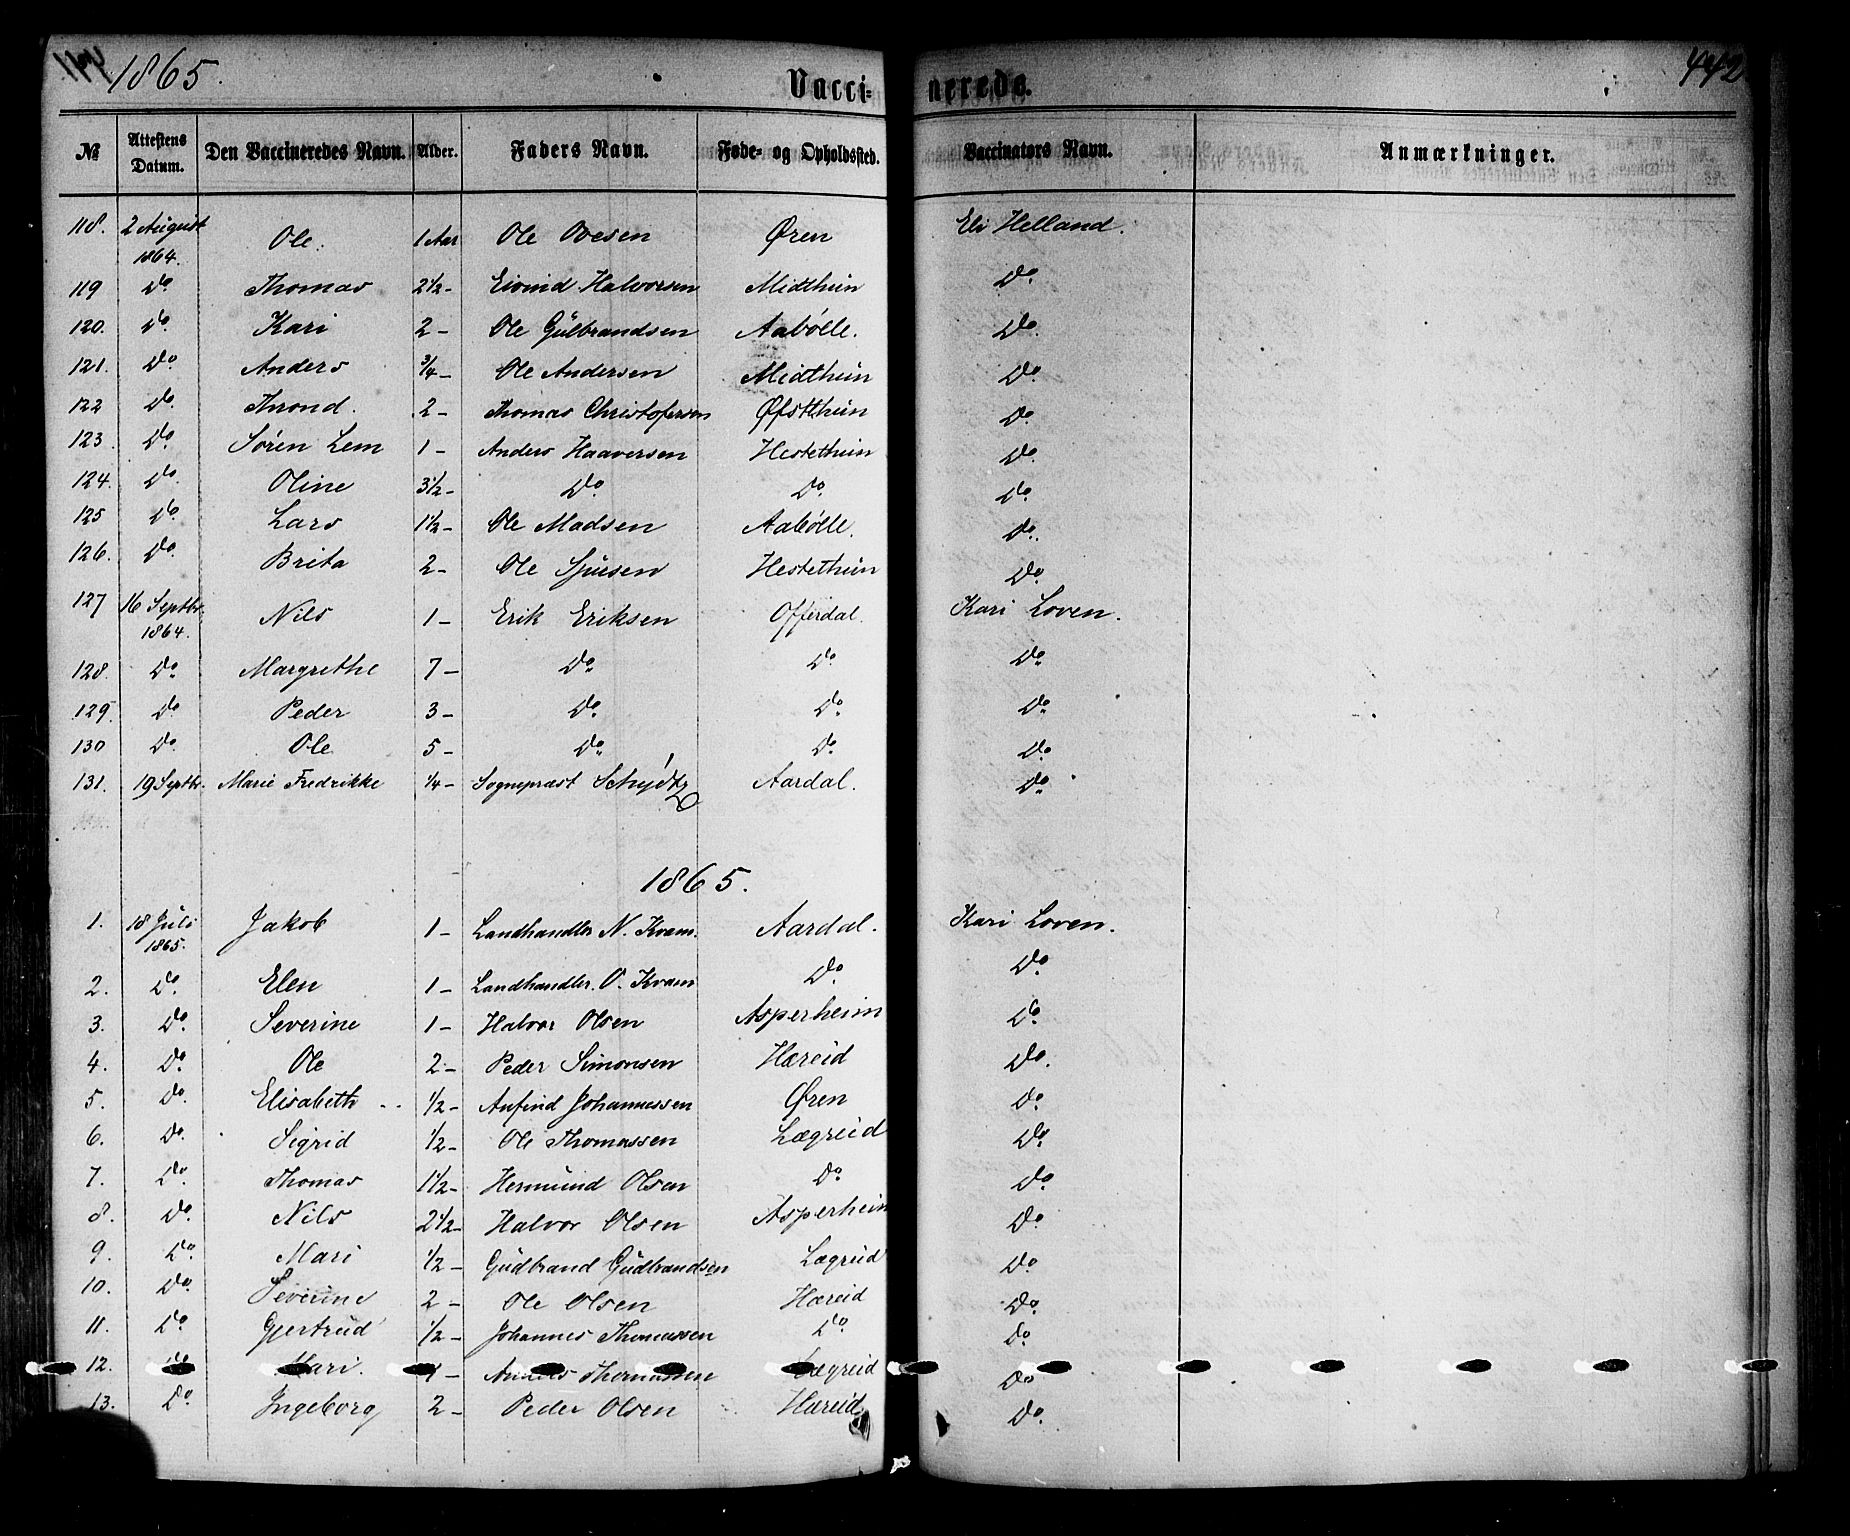 1865. Vacci= nerede. 442
№ Attestens Datum. Den Vaccineredes Navn. Alder. Faders Navn. Føde- og Opholdssted. Vaccinators Navn. Anmærkninger.
118. 2 August 1864. Ole. 1 Aar Ole Ovesen Øren Eli Helland.
119 Do. Thomas 2½- Eivind Halvorsen Midthun Do.
120. Do. Kari 2- Ole Gulbrandsen Aabølle. Do.
121. Do. Anders ¾- Ole Andersen Midthun Do.
122 Do. Thrond. 2- Thomas Christofersen Øfstthun Do.
123. Do. Søren Lem 1- Anders Haaversen Hestethun Do.
124. Do. Oline 3½- Do. Do. Do.
125 Do. Lars 1½- Ole Madsen Aabølle. Do.
126. Do. Brita 2- Ole Hestethun Do.
127 16 Septbr. 1864. Nils 1- Erik Eriksen Offerdal. Kari Loven.
128. Do. Margrethe 7- Do. Do. Do.
129. Do. Peder 3- Do. Do. Do.
130 Do. Ole 5- Do. Do. Do.
131. 19 Septbr. Marie Fredrikke ¼- Sognepræst Schydtz Aardal. Do.
1865.
1. 18 Juli 1865. Jakob 1- Landhandler N. Kvam. Aardal. Kari Loven.
2. Do. Elen 1- Landhandler. O. Kvam Do. Do.
3. Do. Severine 1- Halvor Olsen Asperheim Do.
4. Do. Ole 2- Peder Simonsen Hæreid Do.
5. Do. Elisabeth ½- Anfind Johannessen Øren Do.
6. Do. Sigrid ½- Ole Thomassen Lægreid Do.
7. Do. Thomas 1½- Hermund Olsen Do. Do.
8. Do. Nils 2½- Halvor Olsen Asperheim Do.
9. Do. Mari ½- Gudbrand Gudbrandsen Lægreid Do.
10. Do. Severine 2- Ole Olsen Hæreid Do.
11. Do. Gjertrud ½- Johannes Thomassen Do. Do.
12. Do Mari. 1- Anders Thomassen Lægreid Do.
13. Do. Ingeborg 2- Peder Olsen Hæreid Do.